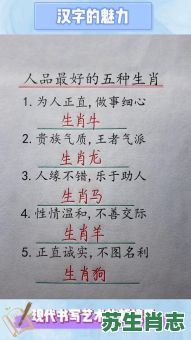 汉字的魅力
人品最好的五种生肖
1.为人正直,做事细心
生肖牛
2.贵族气质,王者气派
生肖龙
3.人缘不错,乐于助人
生肖马
4.性情温和,不善交际
生肖羊
5.正直诚实,不图名利
生肖狗
现代书写艺术
苏生肖志